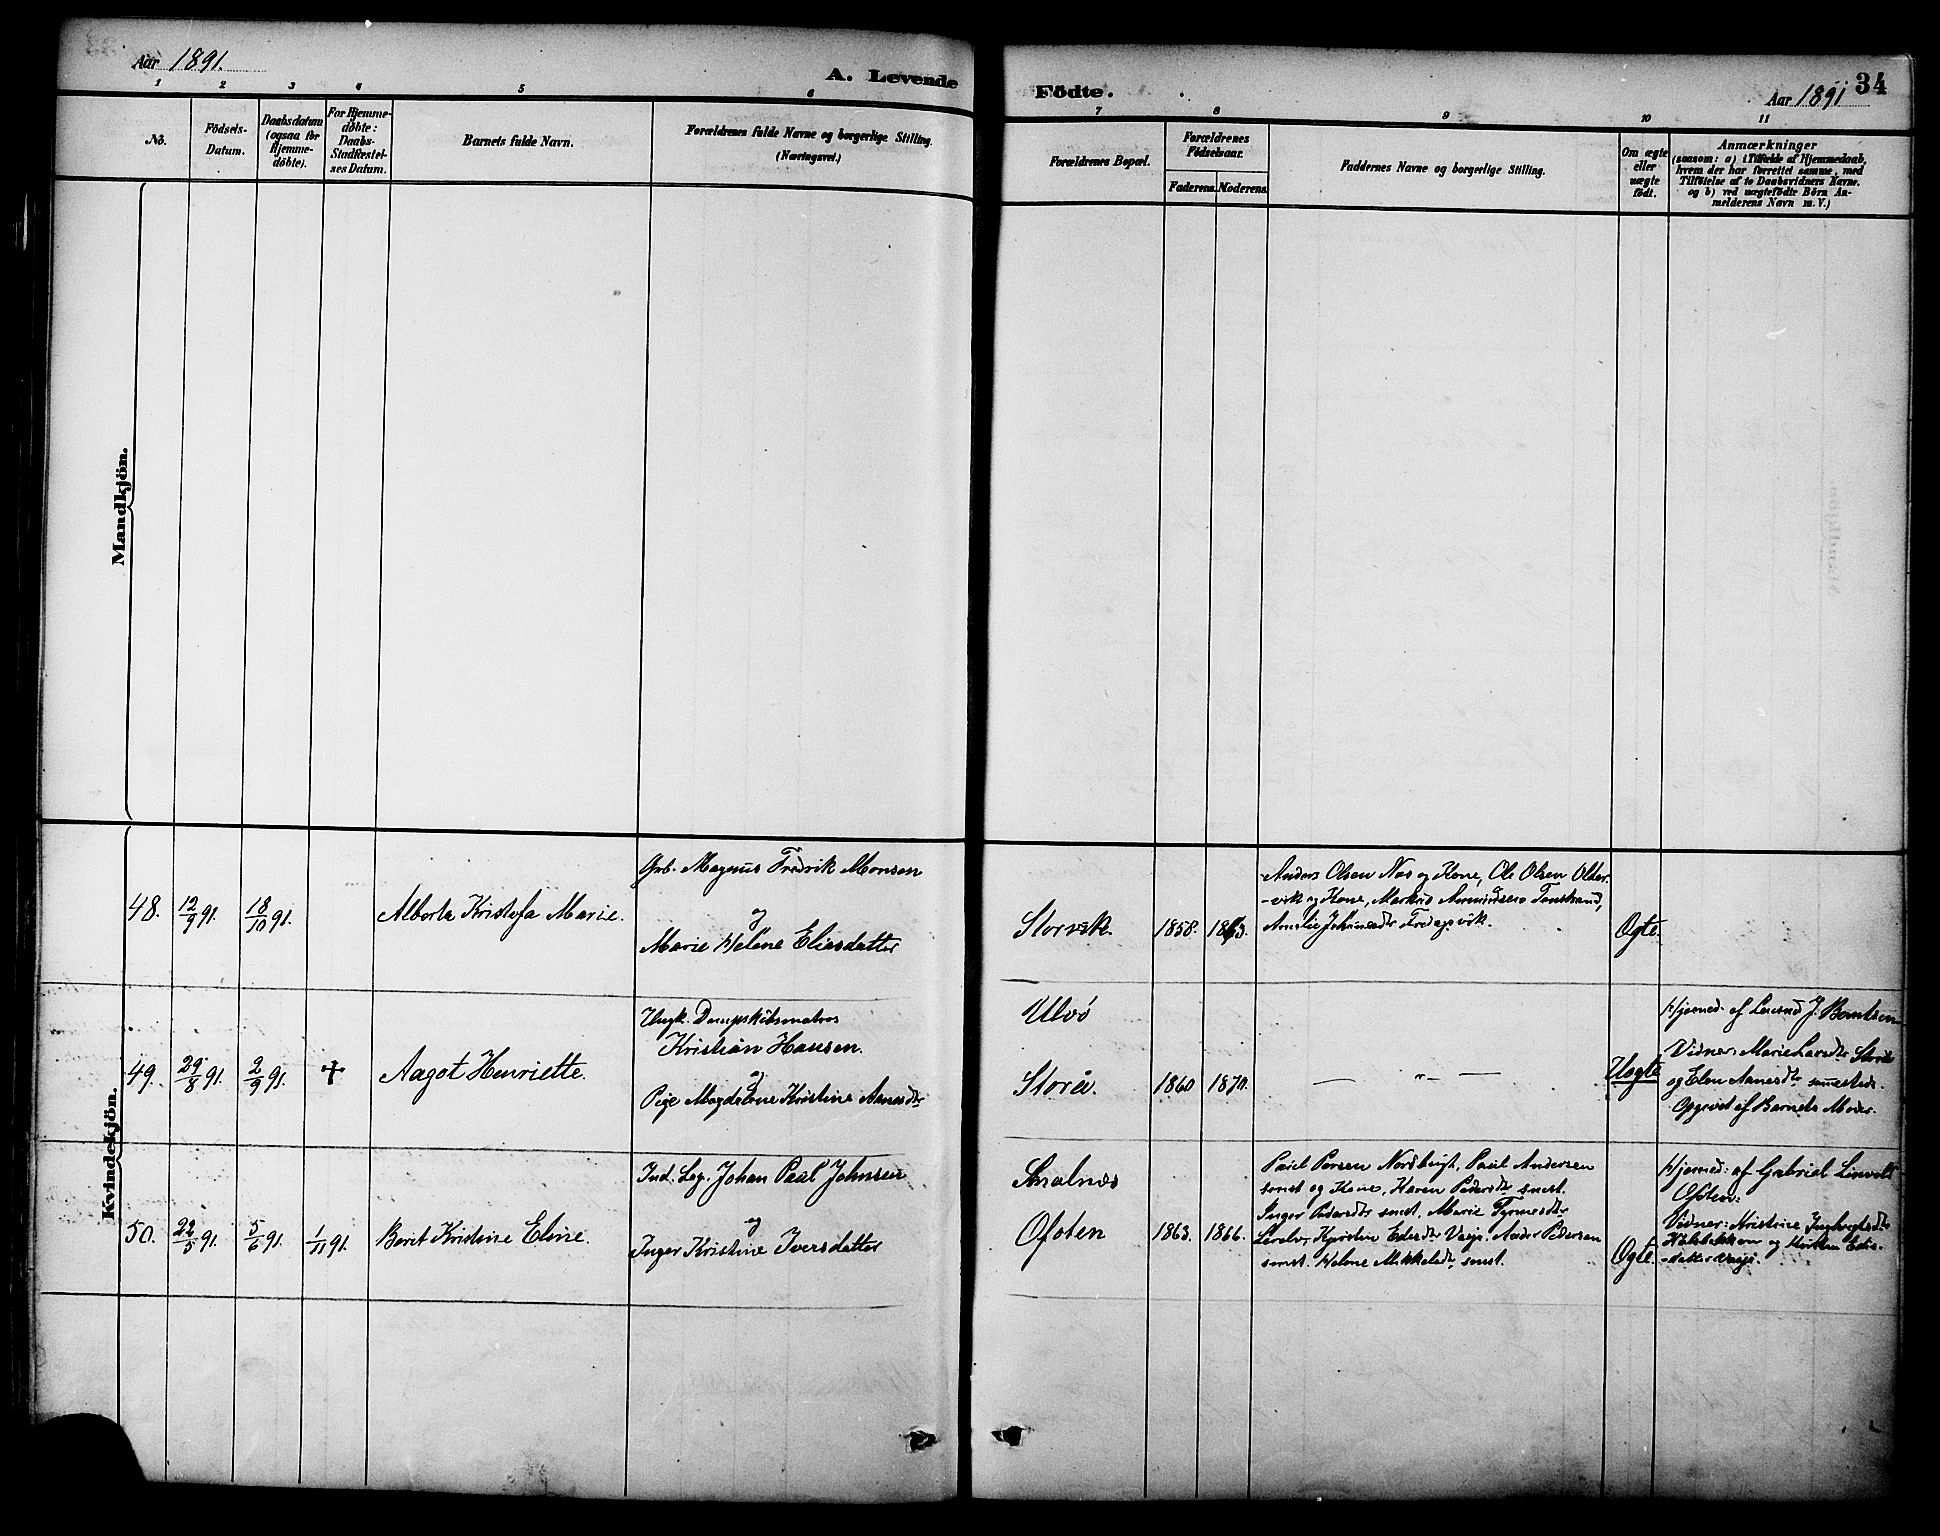 Aar 1891.
A. Levende
Födte.
Aar 1891
34
1 2 3 4 5 6 7 8 9 10 11
No.
Födsels-
Datum.
Daabsdatum
(ogsaa for
Hjemme-
döbte).
For Hjemme-
döbte:
Daabs-
Stadfæstel-
ses Datum.
Barnets fulde Navn.
Forældrenes fulde Navne og borgerlige Stilling.
(Næringsvei.)
Forældrenes Bopæl.
Forældrenes
Födselsaar.
Faderens. Moderens.
Faddernes Navne og borgerlige Stilling.
Om ægte
eller
uægte
födt.
Anmærkninger
(saasom: a) i Tilfælde af Hjemmedaab,
hvem der har forrettet samme, med
Tilföielse af to Daabsvidners Navne.
og b) ved uægtefödte Börn An-
melderens Navn m. V.)
Mandkjön.
Kvindekjön.
48.
12/9 91.
18/10 91.
Alberta Kristofa Marie.
Grb. Magnus Fredrik Monsen
og
Marie Helene Eliasdatter
Storvik.
1858.
Anders Olsen Nes og Kone, Ole Olsen Older-
-vik og Kone, Markus
Ægte.
49.
29/8 91.
2/9 91.
Aagot Henriette.
Ungk. Dampskibsmatros
Kristian Hansen.
og
Pige Magdalene Kristine Aanesdtr
Ulvö
Storå.
1860
1870.
— „ —
Uægte
Hjemmed: af J. Berntsen
Vidner: Marie Larsdtr
og Elen Aanesdtr sammesteds.
Opgivet af Barnets Moder.
50.
22/5 91.
5/6 91.
1/11 91.
Berit Kristine Eline.
Ind. Leg. Johan Paul Johnsen
og
Inger Kristine Iversdatter
Smalnes
Ofoten
1863.
1866.
Paul Persen Nordbugt, Paul Andersen
smst og Kone, Karen Pedersdtr smst.
Inger Pedersdtr smst, Marie
Pedersen
smst. Helene Mikkelsdtr, smst.
Ægte.
Hjemmed: af Gabriel
Ofoten:
Vidner: Kristine Ingbrigtsdtr
og